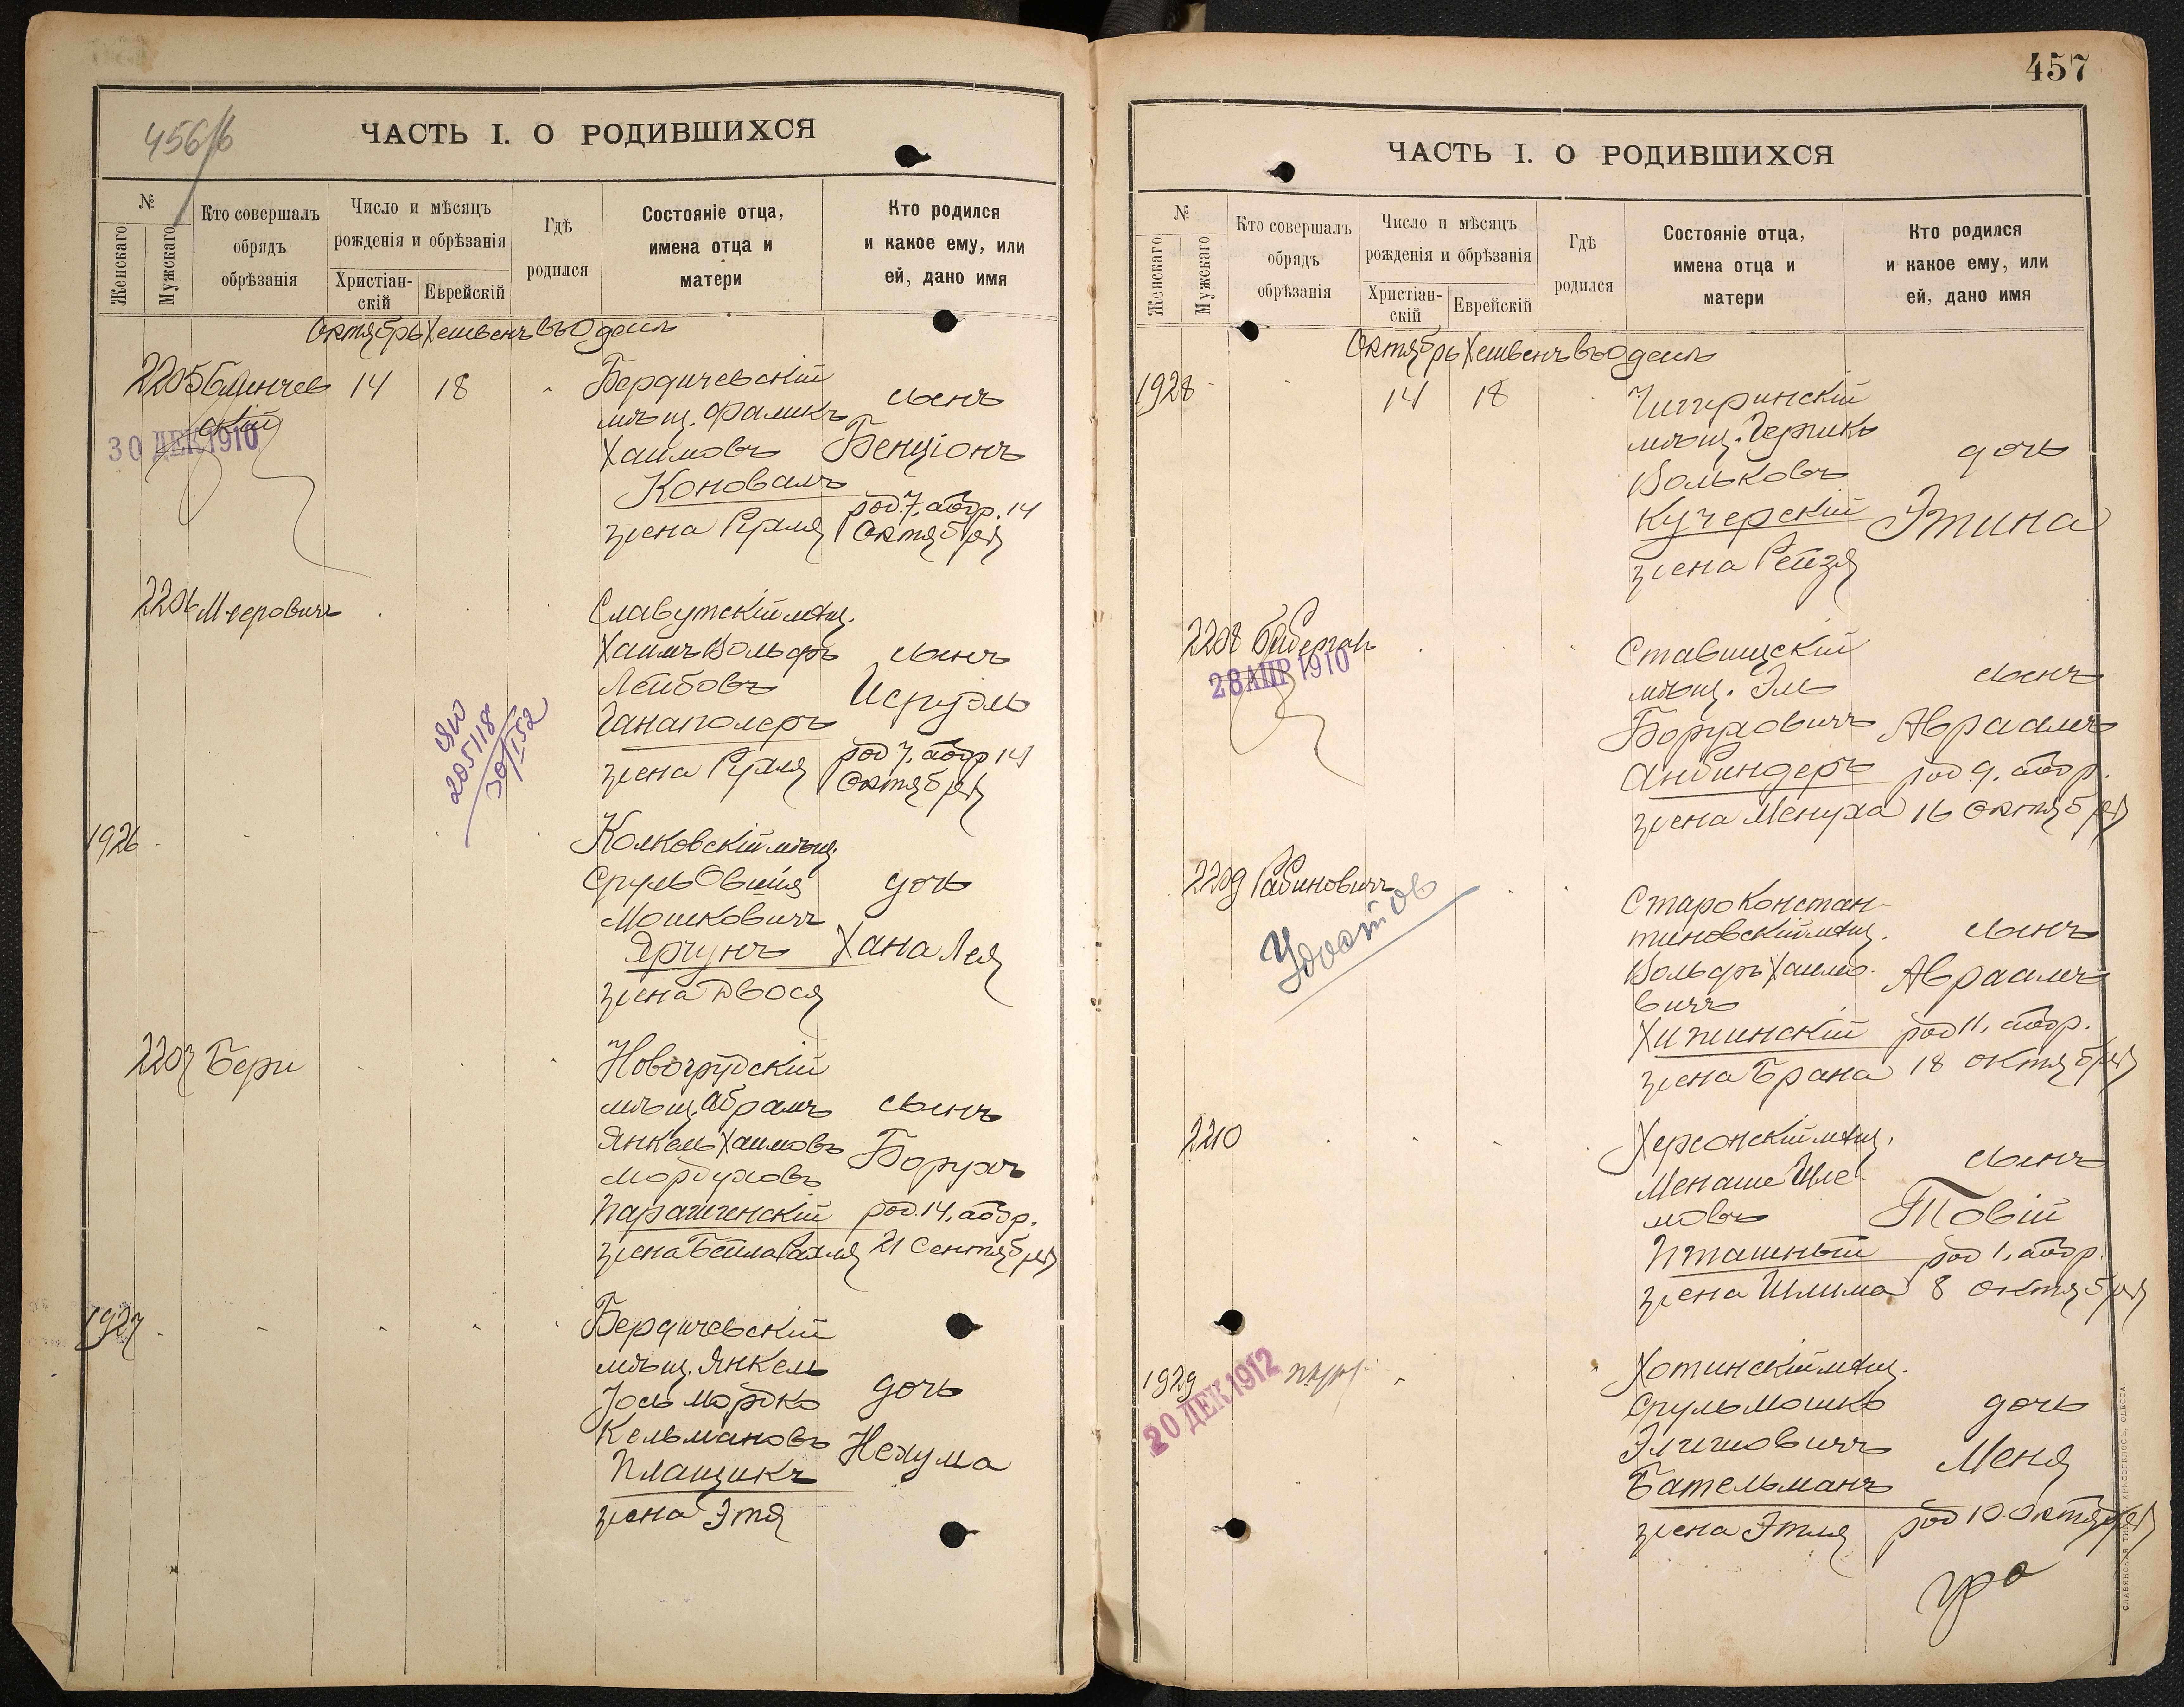 456/б
ЧАСТЬ I. О РОДИВШИХСЯ
№
Женскаго
Мужскаго
Кто совершалъ
обрядъ
обрѣзанія
Число и мѣсяцъ
рожденія и обрѣзанія
Христіан-
скій
Еврейскій
Гдѣ
родился
Состояніе отца,
имена отца и
матери
Кто родился
и какое ему, или
ей, дано имя
Октябрь Хешвенъ въ Одессѣ
2205 14 18
30 ДЕК 1910
Бердичевскій
мѣщ. Фаликъ
Хаимовъ
Коновалъ
жена Рухля
сынъ
Бенціонъ
род. 7, обр. 14
Октября
2206 Мееровичъ
Славутскій мѣщ.
Хаимъ Вольфъ
Лейбовъ
Ганаполеръ
жена Рухля
сынъ
Исруэль
род 7, обр 14
Октября
205118
30/I 52
1926
Колковскій мѣщ.
Сруль Овшія
Мошковичъ
Яргунъ
жена Двося
дочь
Хана Лея
2207 Бери
Новогрудскій
мѣщ. Абрамъ
Янкель Хаимовъ
Мордуховъ
жена Бейла Рахля
сынъ
Борухъ
род. 14, обр.
21 Сентября
1927
Бердичевскій
мѣщ. Янкель
Іось Мордко
Кельмановъ
Плащикъ
жена Этя
дочь
Нехума
457
ЧАСТЬ I. О РОДИВШИХСЯ
№
Женскаго
Мужскаго
Кто совершалъ
обрядъ
обрѣзанія
Число и мѣсяцъ
рожденія и обрѣзанія
Христіан-
скій
Еврейскій
Гдѣ
родился
Состояніе отца,
имена отца и
матери
Кто родился
и какое ему, или
ей, дано имя
Октябрь Хешвенъ въ Одессѣ
1928 14 18
Чигиринскій
мѣщ. Гершко
Вольковъ
Кучерскій
жена Рейзя
дочь
Этина
2208
28 АПР 1910
Ставищскій
мѣщ. Эль
Боруховичъ
Анбиндеръ
жена Менуха
сынъ
Авраамъ
род 9, обр.
16 Октября
2209 Рабиновичъ
Удост ов
Старо Констан-
тиновскій мѣщ.
Вольфъ Хаимо-
вичъ
Хижинскій
жена Брана
сынъ
Авраамъ
род 11, обр.
18 октября
2210
Херсонскій мѣщ.
Менаше Шле-
мовъ
Пташный
жена Шлима
сынъ
Товій
род 1, обр.
8 октября
1929
20 ДЕК 1912
Хотинскій мѣщ.
Сруль Мошко
Бательманъ
жена Этля
дочь
Меня
род 10 Октября
СЛАВЯНСКАЯ ТИП. Е. ХРИСОГЕЛОСЪ, ОДЕССА.